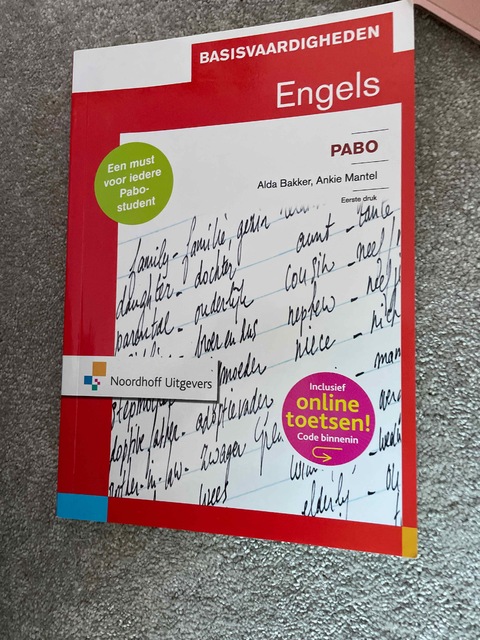 BASISVAARDIGHEDEN
Engels
PABO
Alda Bakker, Ankie Mantel
Eerste druk
Een must
voor iedere
Pabo-
student
family - familie, gezin
aunt - tante
daughter - dochter
cousin - neef
parental - ouderlijk
nephew - neefje
broer en zus
niece - nich
moeder
man
Noordhoff Uitgevers
adoptievader
father
-in-law - zwager
wees
elderly
Inclusief
online
toetsen!
Code binnenin